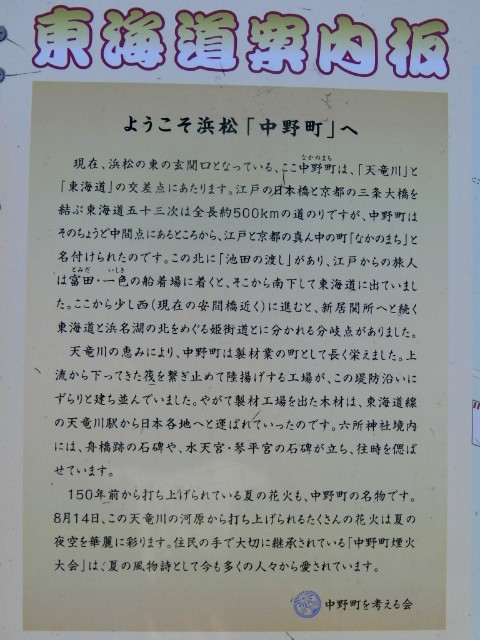 東海道案内板
ようこそ浜松「中野町」へ
現在、浜松の東の玄関口となっている、ここ中野町は、「天竜川」と
なかのまち
「東海道」の交差点にあたります。江戸の日本橋と京都の三条大橋を
結ぶ東海道五十三次は全長約500kmの道のりですが、中野町は
そのちょうど中間点にあるところから、江戸と京都の真ん中の町「なかのまち」と
名付けられたのです。この北に「池田の渡し」があり、江戸からの旅人
は富田・一色の船着場に着くと、そこから南下して東海道に出ていま
とみだ いしき
した。ここから少し西(現在の安間橋近く)に進むと、新居関所へと続く
東海道と浜名湖の北をめぐる姫街道とに分かれる分岐点がありました。
天竜川の恵みにより、中野町は製材業の町として長く栄えました。上
流から下ってきた筏を繋ぎ止めて陸揚げする工場が、この堤防沿いに
ずらりと建ち並んでいました。やがて製材工場を出た木材は、東海道線
の天竜川駅から日本各地へと運ばれていったのです。六所神社境内
には、舟橋跡の石碑や、水天宮・琴平宮の石碑が立ち、往時を偲ば
せています。
150年前から打ち上げられている夏の花火も、中野町の名物です。
8月14日、この天竜川の河原から打ち上げられるたくさんの花火は夏の
夜空を華麗に彩ります。住民の手で大切に継承されている「中野町煙火
大会」は、夏の風物詩として今も多くの人々から愛されています。
中野町を考える会